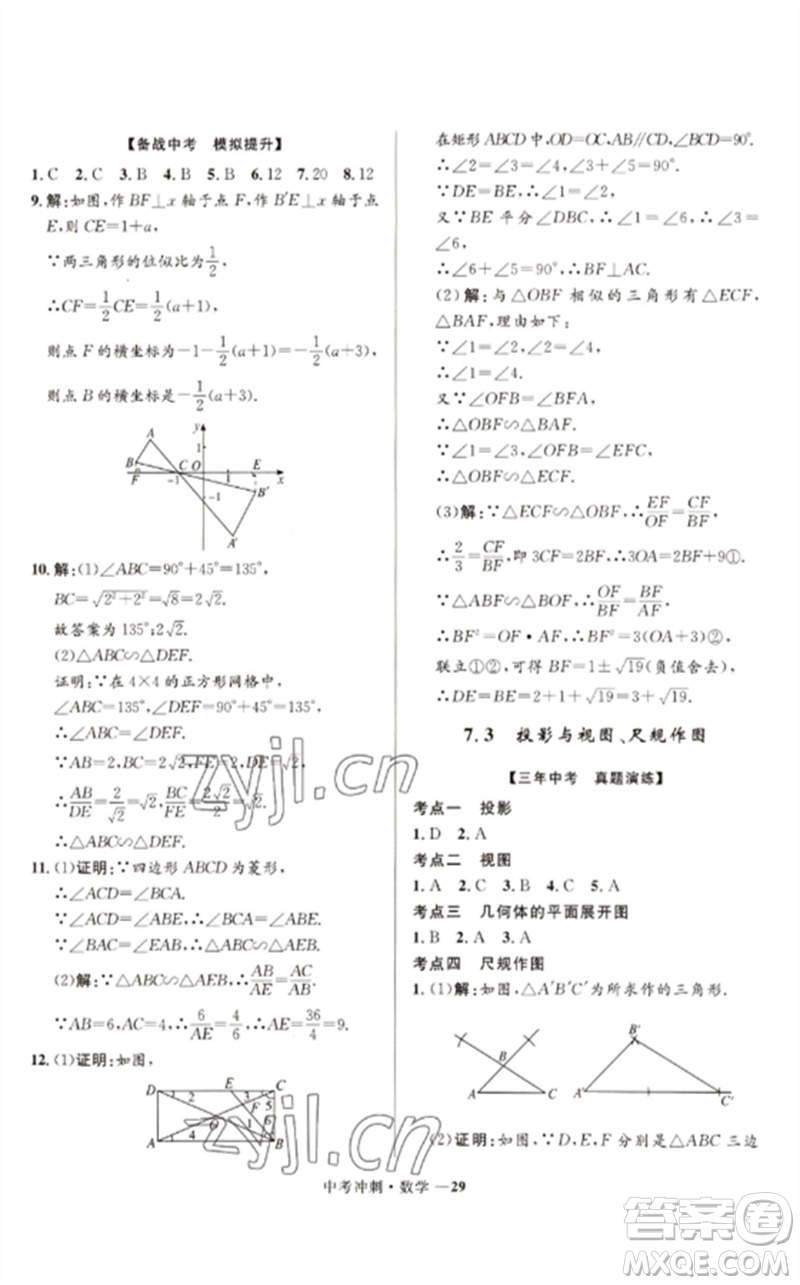 【备战中考 模拟提升】
1. C 2. C 3. B 4. B 5. B 6.12 7.20 8.12
9. 解:如图,作 BF⊥x 轴于点 F,作 B′E⊥x 轴于点
E,则 CE=1+a,
∵两三角形的位似比为1/2,
∴CF=1/2CE=1/2(a+1),
则点 F 的横坐标为-1-1/2(a+1)=-1/2(a+3),
则点 B 的横坐标是-1/2(a+3).
y
A
1
B
C
O
E
F
-1
1
x
-1
B′
A′
10. 解:(1)∠ABC=90°+45°=135°,
BC=√(2²+2²)=√8=2√2.
故答案为 135°;2√2.
(2)△ABC∽△DEF.
证明:∵在 4×4 的正方形网格中,
∠ABC=135°,∠DEF=90°+45°=135°,
∴∠ABC=∠DEF.
∵AB=2,BC=2√2,FE=2,DE=√2,
∴AB/DE=2/√2=√2,BC/FE=2√2/2=√2.
∴△ABC∽△DEF.
11. (1)证明:∵四边形 ABCD 为菱形,
∴∠ACD=∠BCA.
∵∠ACD=∠ABE,∴∠BCA=∠ABE.
∵∠BAC=∠EAB,∴△ABC∽△AEB.
(2)解:∵△ABC∽△AEB,∴AB/AE=AC/AB.
∵AB=6,AC=4,∴6/AE=4/6,∴AE=36/4=9.
12. (1)证明:如图,
D
E
C
2
3
5
F
6
O
1
4
A
B
在矩形 ABCD 中,OD=OC,AB∥CD,∠BCD=90°.
∴∠2=∠3=∠4,∠3+∠5=90°.
∵DE=BE,∴∠1=∠2.
又∵BE 平分∠DBC,∴∠1=∠6,∴∠3=
∠6,
∴∠6+∠5=90°,∴BF⊥AC.
(2)解:与△OBF 相似的三角形有△ECF,
△BAF,理由如下:
∵∠1=∠2,∠2=∠4,
∴∠1=∠4.
又∵∠OFB=∠BFA,
∴△OBF∽△BAF.
∵∠1=∠3,∠OFB=∠EFC,
∴△OBF∽△ECF.
(3)解:∵△ECF∽△OBF,∴EF/OF=CF/BF,
∴2/3=CF/BF,即 3CF=2BF,∴3OA=2BF+9①.
∵△ABF∽△BOF,∴OF/BF=BF/AF,
∴BF²=OF·AF,∴BF²=3(OA+3)②,
联立①②,可得 BF=1±√19(负值舍去),
∴DE=BE=2+1+√19=3+√19.
7.3 投影与视图、尺规作图
【三年中考 真题演练】
考点一 投影
1. D 2. A
考点二 视图
1. A 2. C 3. C 4. C 5. A
考点三 几何体的平面展开图
1. B 2. A 3. A
考点四 尺规作图
1. (1)解:如图,△A′B′C′为所求作的三角形.
B
A
C
B′
A′
C′
(2)证明:如图,∵D,E,F 分别是△ABC 三边
中考冲刺·数学—29
zyjl.cn
zyjl.cn
答案卷
MXQE.COM